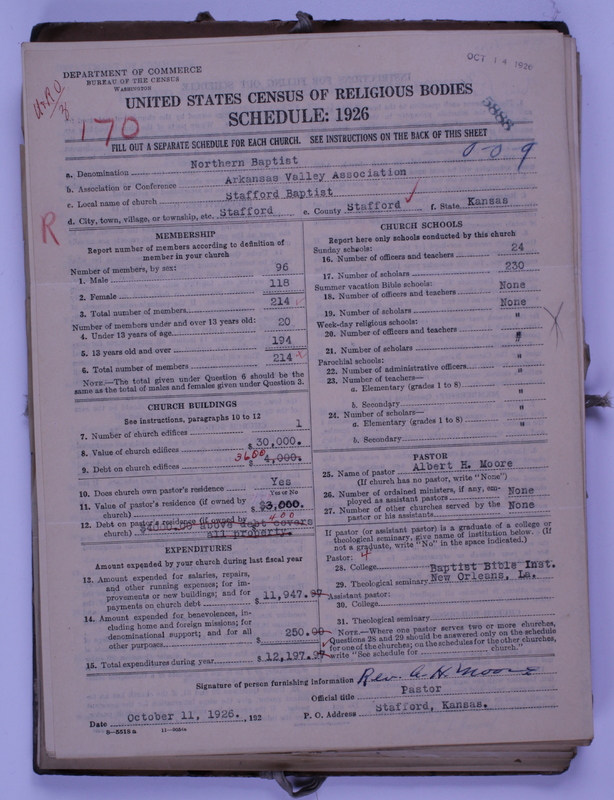 OCT 14 1926
DEPARTMENT OF COMMERCE
BUREAU OF THE CENSUS
WASHINGTON
UNITED STATES CENSUS OF RELIGIOUS BODIES
SCHEDULE: 1926
5885
170
FILL OUT A SEPARATE SCHEDULE FOR EACH CHURCH. SEE INSTRUCTIONS ON THE BACK OF THIS SHEET
0-0 9
a. Denomination Northern Baptist
b. Association or Conference Arkansas Valley Association
c. Local name of church Stafford Baptist
d. City, town, village, or township, etc. Stafford e. County Stafford f. State Kansas
R
MEMBERSHIP
Report number of members according to definition of
member in your church
Number of members, by sex:
1. Male 96
2. Female 118
3. Total number of members 214
Number of members under and over 13 years old:
4. Under 13 years of age 20
5. 13 years old and over 194
6. Total number of members 214
NOTE.—The total given under Question 6 should be the
same as the total of males and females given under Question 3.
CHURCH BUILDINGS
See instructions, paragraphs 10 to 12
7. Number of church edifices 1
8. Value of church edifices $ 30,000.
9. Debt on church edifices 3600 $ 4,000.
10. Does church own pastor's residence Yes
Yes or No
11. Value of pastor's residence (if owned by
church) $ 3,000.
12. Debt on pastor's residence (if owned by 400
church) $4000.00 above debt covers
all property.
EXPENDITURES
Amount expended by your church during last fiscal year
13. Amount expended for salaries, repairs,
and other running expenses; for im-
provements or new buildings; and for
payments on church debt $ 11,947.97
14. Amount expended for benevolences, in-
cluding home and foreign missions; for
denominational support; and for all
other purposes $ 250.00
15. Total expenditures during year $ 12,197.97
CHURCH SCHOOLS
Report here only schools conducted by this church
Sunday schools:
16. Number of officers and teachers 24
17. Number of scholars 230
Summer vacation Bible schools:
18. Number of officers and teachers None
19. Number of scholars None
Week-day religious schools:
20. Number of officers and teachers "
21. Number of scholars "
Parochial schools:
22. Number of administrative officers "
23. Number of teachers—
a. Elementary (grades 1 to 8) "
b. Secondary "
24. Number of scholars—
a. Elementary (grades 1 to 8) "
b. Secondary "
PASTOR
25. Name of pastor Albert H. Moore
(If church has no pastor, write "None")
26. Number of ordained ministers, if any, em-
ployed as assistant pastors None
27. Number of other churches served by the
pastor or his assistants None
If pastor (or assistant pastor) is a graduate of a college or
theological seminary, give name of institution below. (If
not a graduate, write "No" in the space indicated.)
Pastor: 4
28. College Baptist Bible Inst.
29. Theological seminary New Orleans, La.
Assistant pastor:
30. College
31. Theological seminary
NOTE.—Where one pastor serves two or more churches,
Questions 28 and 29 should be answered only on the schedule
for one of the churches; on the schedules for the other churches,
write "See schedule for church."
Signature of person furnishing information Rev. A. H. Moore
Official title Pastor
Date October 11, 1926. , 192 P. O. Address Stafford, Kansas.
8—5518a